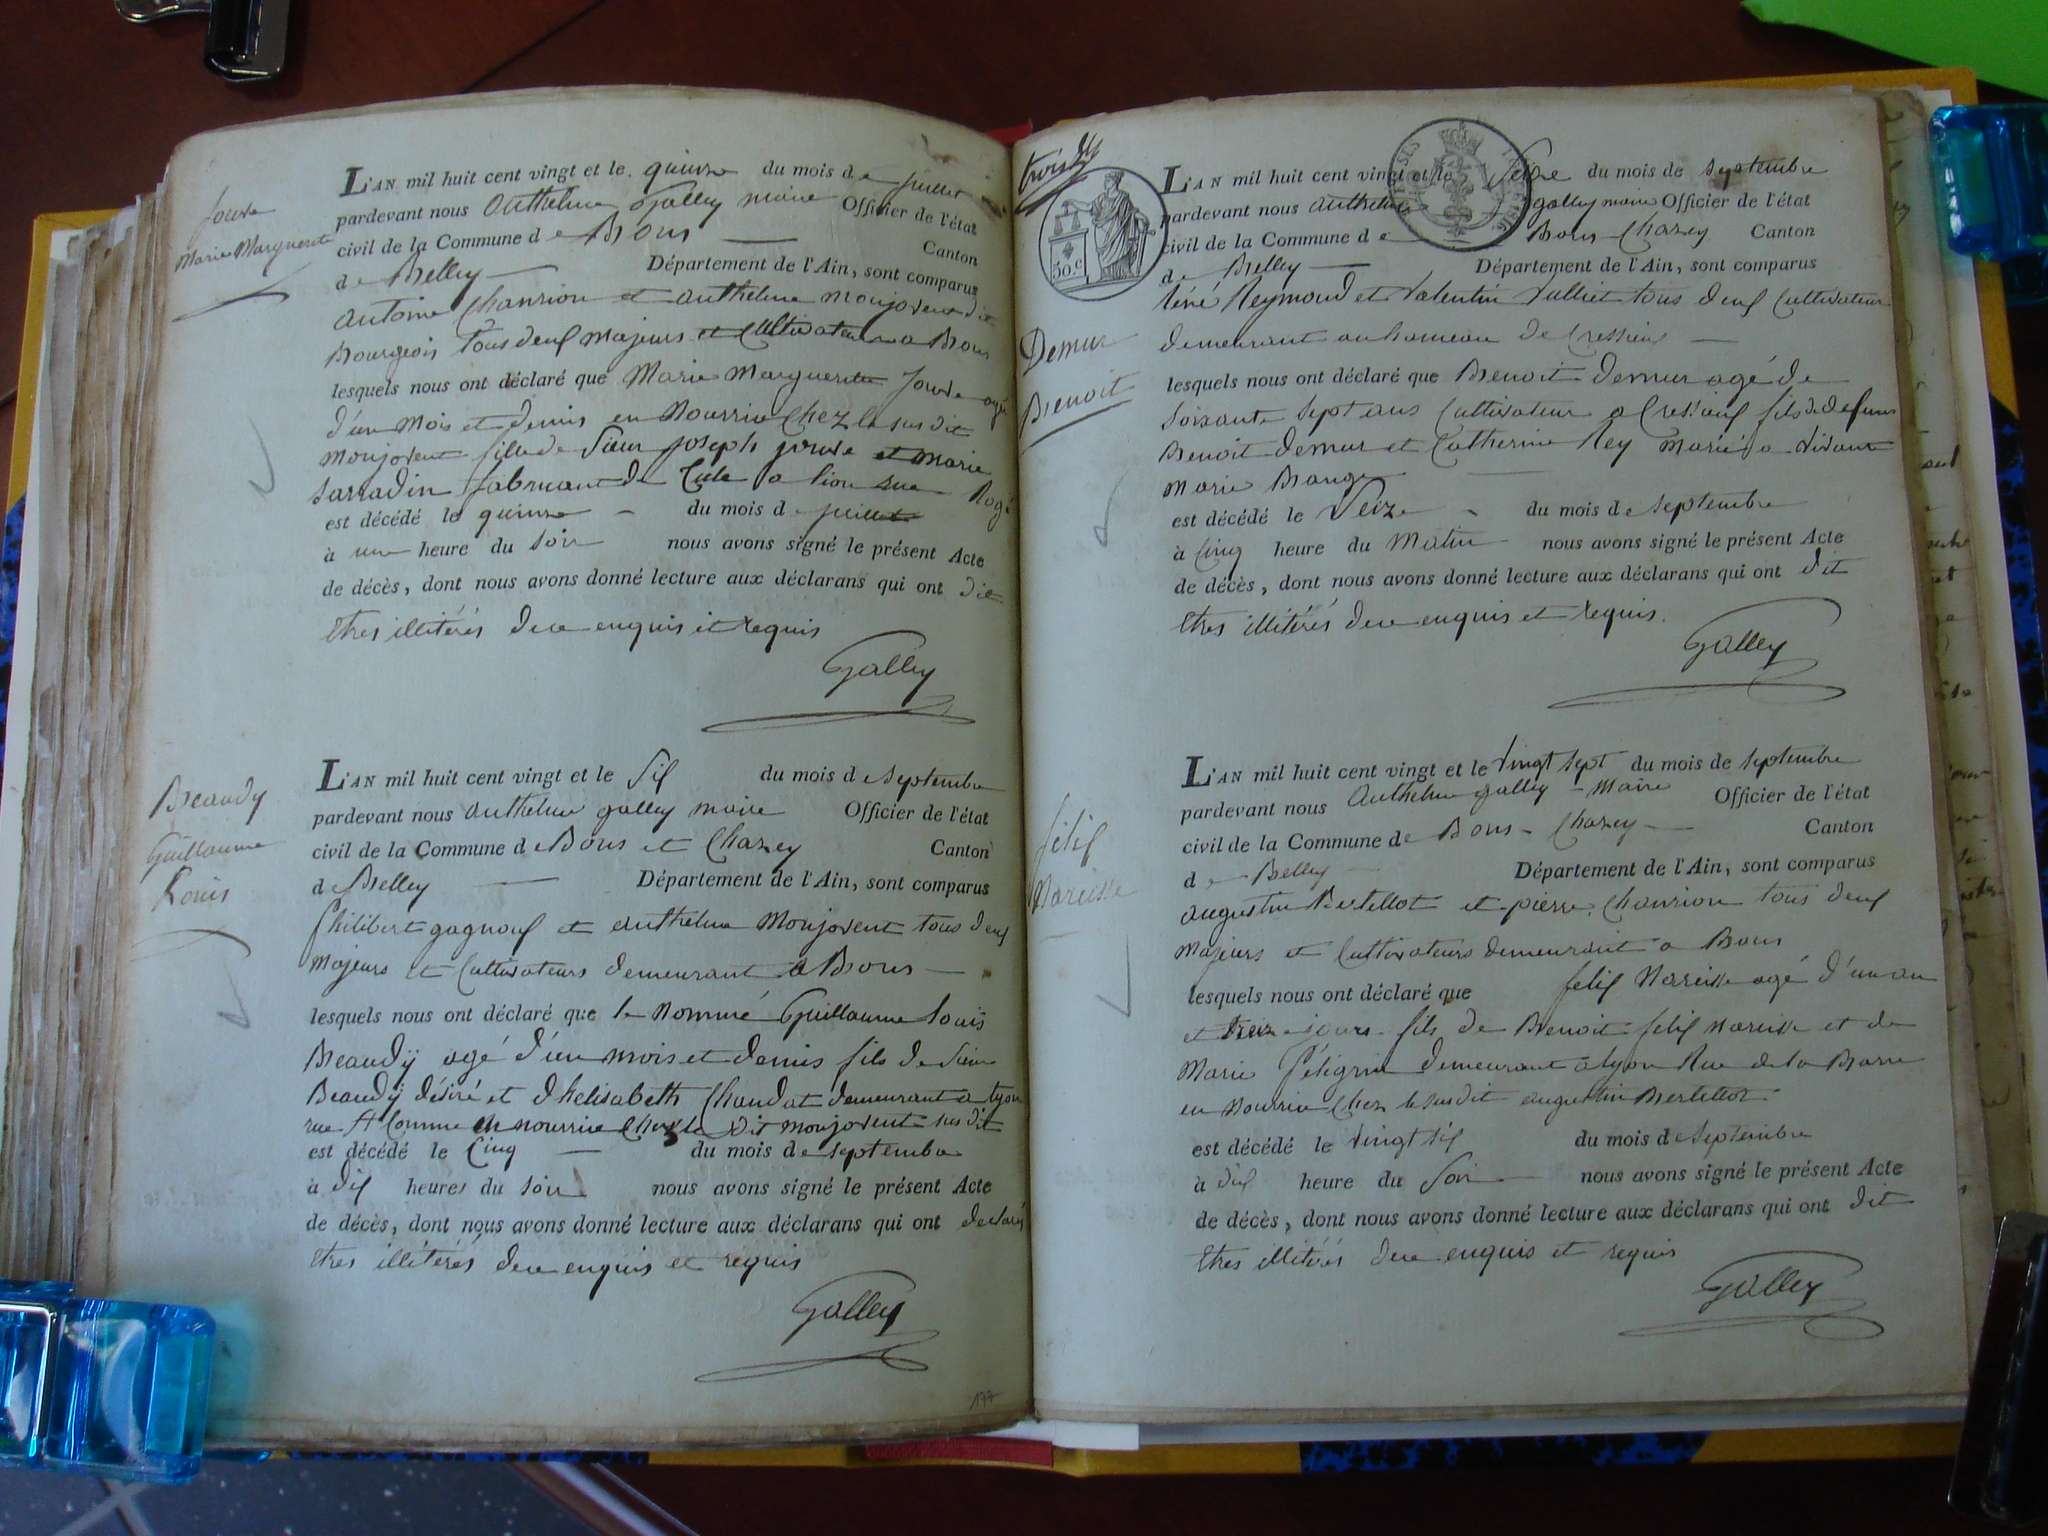 Jouve
Marie Marguerite
L'AN mil huit cent vingt et le quinze du mois de juillet
pardevant nous Anthelme Galley maire Officier de l'état
civil de la Commune de Bons Canton
de Belley Département de l'Ain, sont comparus
Antoine Chanrion et Anthelme Monjovent dit
Bourgeois tous deux majeurs et Cultivateurs a Bons
lesquels nous ont déclaré que Marie Marguerite Jouve agé
d'un mois et demis en Nourrice Chez le sus dit
Monjovent fille de Sieur Joseph Jouve et Marie
Sarradin fabricant de a lion rue
est décédé le quinze du mois de juillet
à une heure du Soir nous avons signé le présent Acte
de décès, dont nous avons donné lecture aux déclarans qui ont dit
Etres illitérés de ce enquis et requis
Galley
Beaudy
Guillaume
Louis
L'AN mil huit cent vingt et le Six du mois de Septembre
pardevant nous Anthelme galley maire Officier de l'état
civil de la Commune de Bons et Chazey Canton
de Belley Département de l'Ain, sont comparus
Philibert gagnoux et Anthelme Monjovent tous deux
Majeurs et Cultivateurs demeurant a Bons
lesquels nous ont déclaré que le Nommé Guillaume Louis
Beaudy agé d'un mois et demis fils de Sieur
Beaudy désiré et dhelisabeth Chaudat demeurant a Lyon
rue St Comme en nourrice Chez le dit Monjovent sus dit
est décédé le Cinq du mois de Septembre
à dix heures du Soir nous avons signé le présent Acte
de décès, dont nous avons donné lecture aux déclarans qui ont déclaré
Etres illitérés de ce enquis et requis
Galley
177
trois
30.C
L'AN mil huit cent vingt et le Seize du mois de Septembre
pardevant nous Anthelme galley maire Officier de l'état
civil de la Commune de Bons Chazey Canton
de Belley Département de l'Ain, sont comparus
Réné Reymond et Valentin Vulliet tous deux Cultivateur
demeurant au hameau de Cressieux
Demur
Benoit
lesquels nous ont déclaré que Benoit demur agé de
Soixante Sept ans Cultivateur a Cressieux fils de defunt
Benoit demur et Catherine Rey Marié a vivant
Marie Brange
est décédé le Seize du mois de Septembre
à Cinq heure du Matin nous avons signé le présent Acte
de décès, dont nous avons donné lecture aux déclarans qui ont dit
Etres illitérés de ce enquis et requis.
Galley
félix
Narcisse
L'AN mil huit cent vingt et le Vingt Sept du mois de Septembre
pardevant nous Anthelme galley Maire Officier de l'état
civil de la Commune de Bons - Chazey Canton
de Belley Département de l'Ain, sont comparus
Augustin Bertellot et pierre Chanrion tous deux
Majeurs et Cultivateurs demeurant a Bons
lesquels nous ont déclaré que félix Narcisse agé d'un an
et treize jours fils de Benoit félix Narcisse et de
Marie Péligrin demeurant a lyon Rue de la Barre
en Nourrice Chez le susdit augustin Bertellot.
est décédé le Vingt Six du mois de Septembre
à dix heure du Soir nous avons signé le présent Acte
de décès, dont nous avons donné lecture aux déclarans qui ont dit
Etres illitérés de ce enquis et requis
Galley